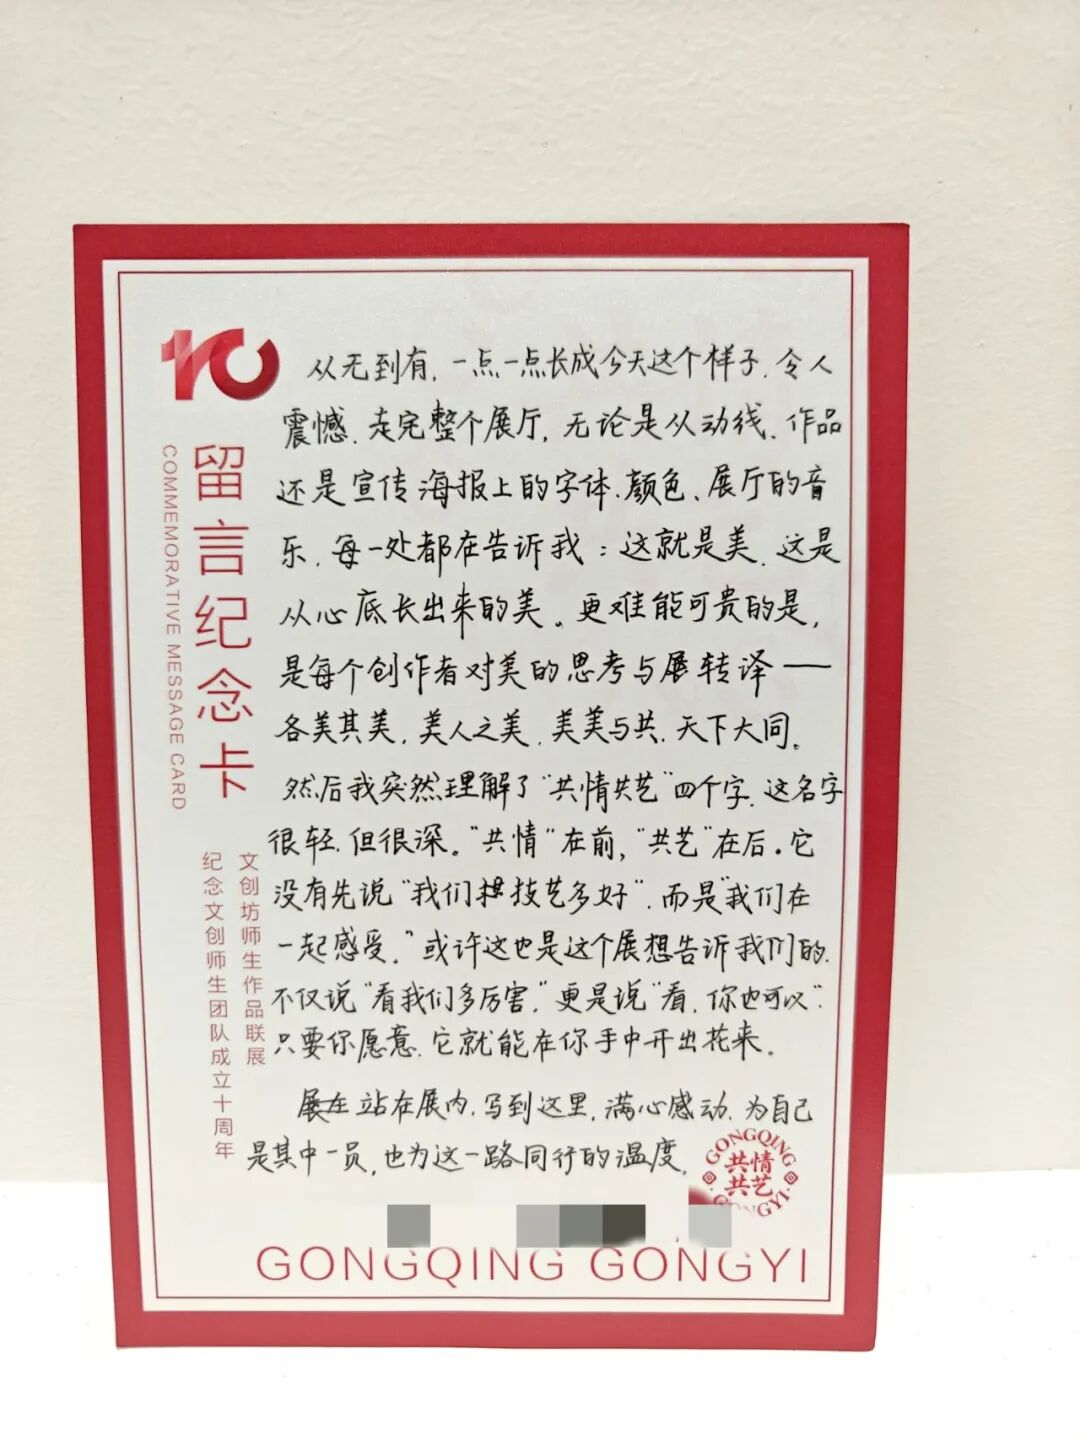 10
留言纪念卡
COMMEMORATIVE MESSAGE CARD
文创坊师生作品联展
纪念文创师生团队成立十周年
从无到有，一点一点长成今天这个样子，令人
震憾．走完整个展厅，无论是从动线、作品
还是宣传海报上的字体．颜色、展厅的音
乐，每一处都在告诉我：这就是美，这是
从心底长出来的美。更难能可贵的是，
是每个创作者对美的思考与展转译——
各美其美，美人之美，美美与共，天下大同。
然后我突然理解了“共情共艺”四个字，这名字
很轻，但很深。“共情”在前，“共艺”在后。它
没有先说“我们技艺多好”，而是“我们在
一起感受。”或许这也是这个展想告诉我们的，
不仅说“看我们多厉害，”更是说“看，你也可以”．
只要你愿意，它就能在你手中开出花来。
站在展内，写到这里，满心感动，为自己
是其中一员，也为这一路同行的温度，
GONGQING
共情
共艺
GONGYI
GONGQING GONGYI